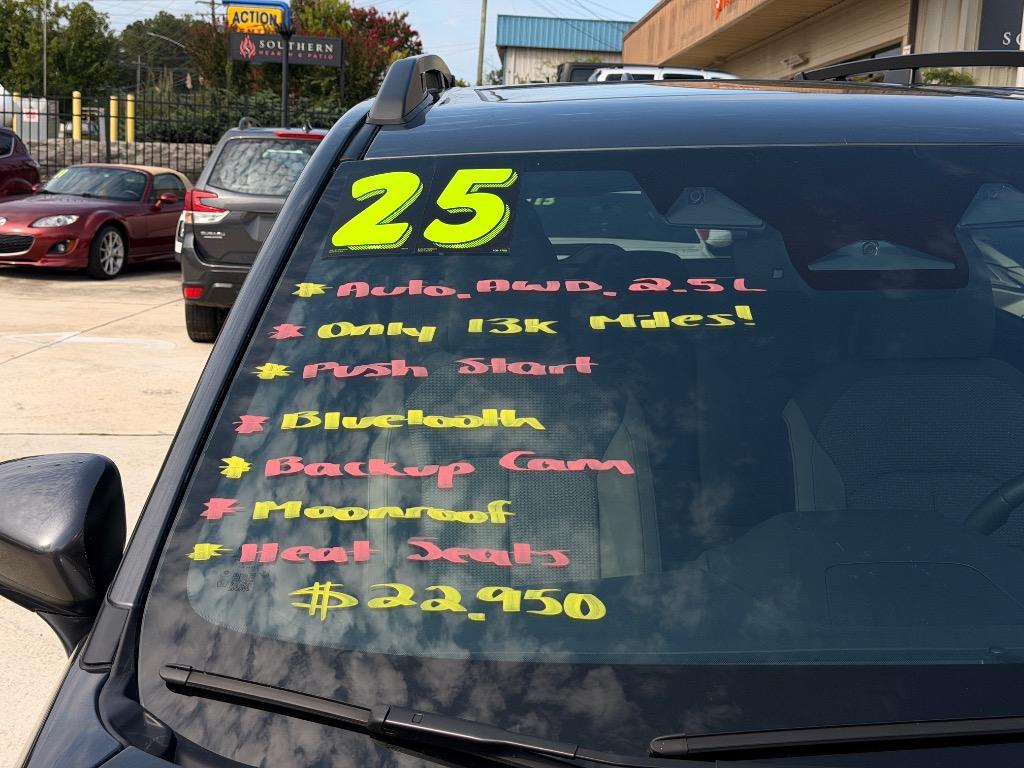 ACTION
SOUTHERN
HEARTH & PATIO
SUBARU
25
* Auto. AWD. 2.5L
* Only 13k Miles!
* Push Start
* Bluetooth
* Backup Cam
* Moonroof
* Heat Seats
$22,950